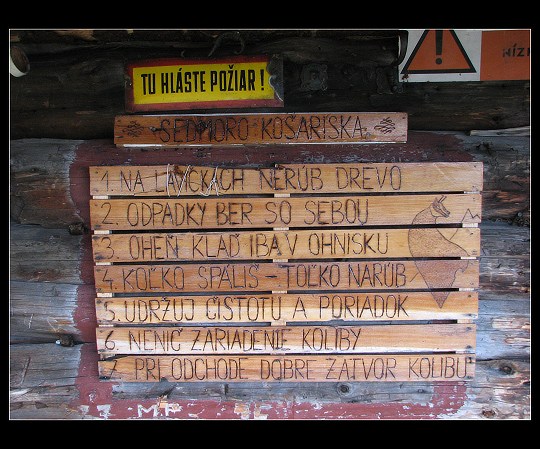 TU HLÁSTE POŽIAR!
HÍZK
SEDMORO KOŠARISKA
1. NA LAVIČKÁCH NERÚB DREVO
2. ODPADKY BER SO SEBOU
3. OHEŇ KLAĎ IBA V OHNISKU
4. KOĽKO SPÁLIŠ - TOĽKO NARÚB
5. UDRŽUJ ČISTOTU A PORIADOK
6. NENIČ ZARIADENIE KOLIBY
7. PRI ODCHODE DOBRE ZATVOR KOLIBU